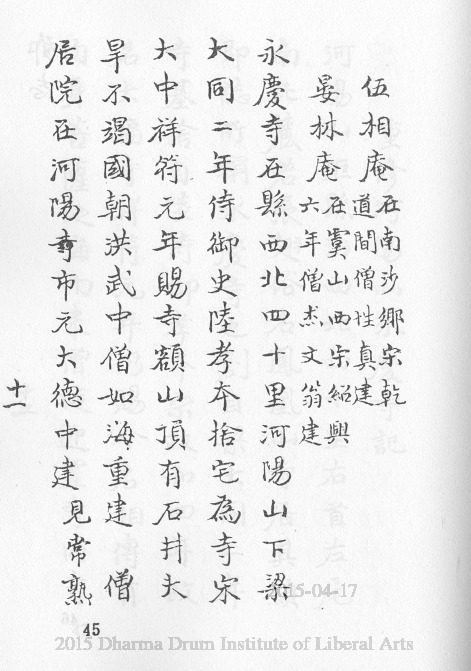 伍相庵在南沙鄉宋乾道間僧性真建
晏林庵在虞山西宋紹興六年僧杰文翁建
永慶寺在縣西北四十里河陽山下梁
大同二年侍御史陸孝本捨宅為寺宋
大中祥符元年賜寺額山頂有石井大
旱不竭國朝洪武中僧如海重建 僧
居院在河陽寺市元大德中建見常熟
十一
45
15-04-17
2015 Dharma Drum Institute of Liberal Arts